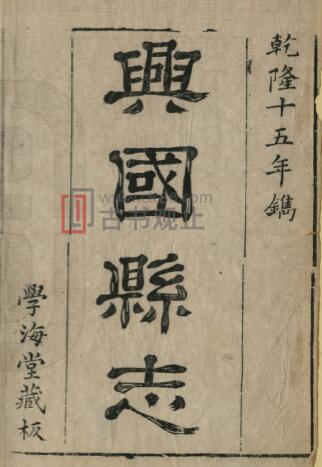 乾隆十五年鐫
興國縣志
學海堂藏板
古书观止